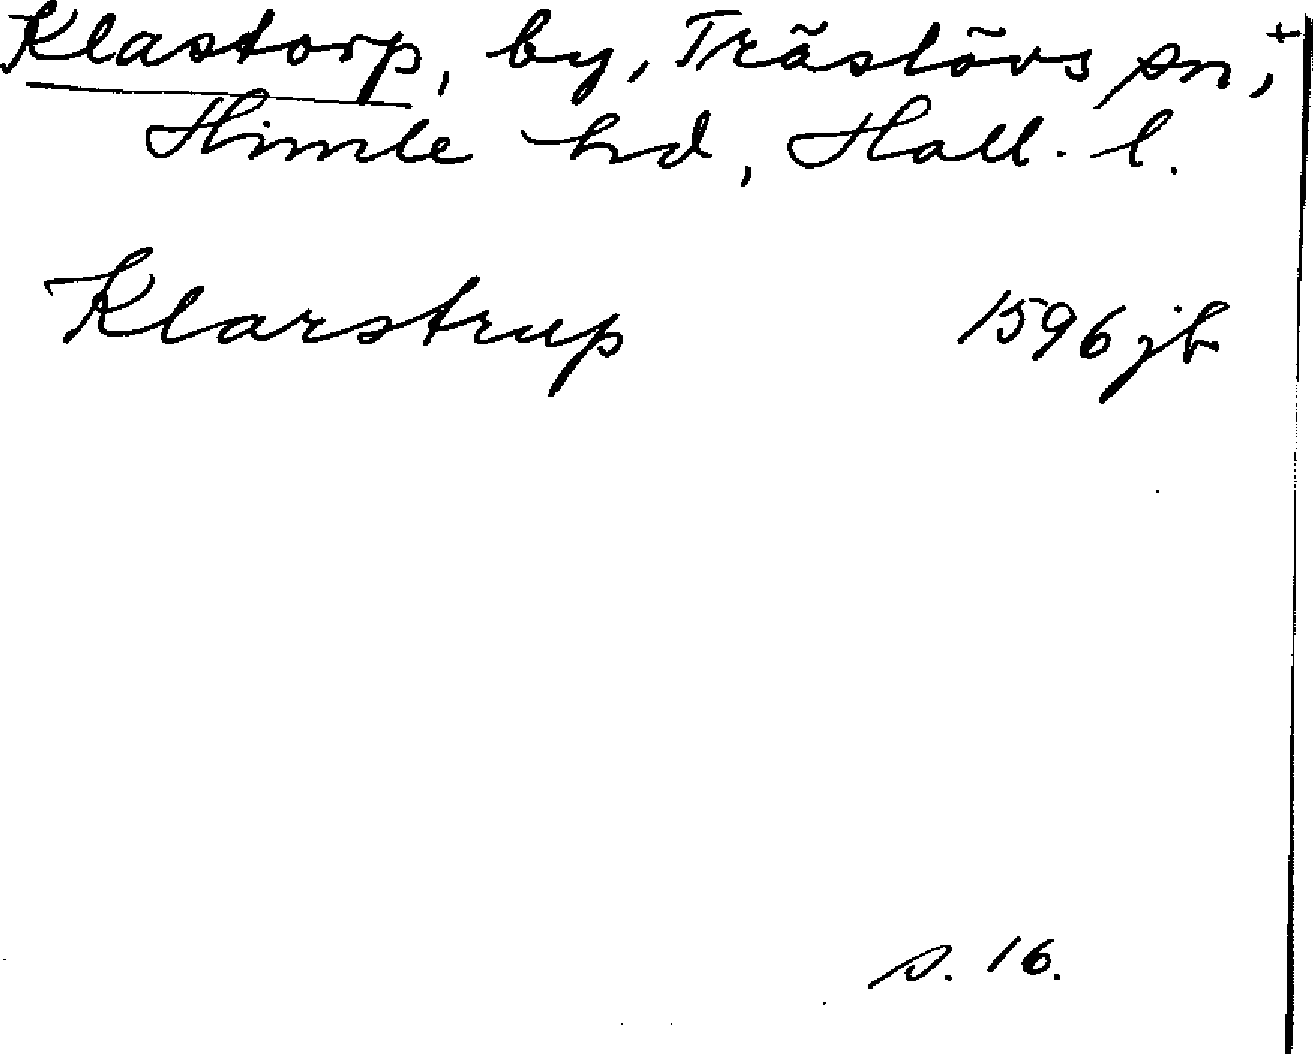 Klastorp, by, Träslövs sn, +
Himle hd, Hall. l.
Klarstrup 1596 jb
s. 16.